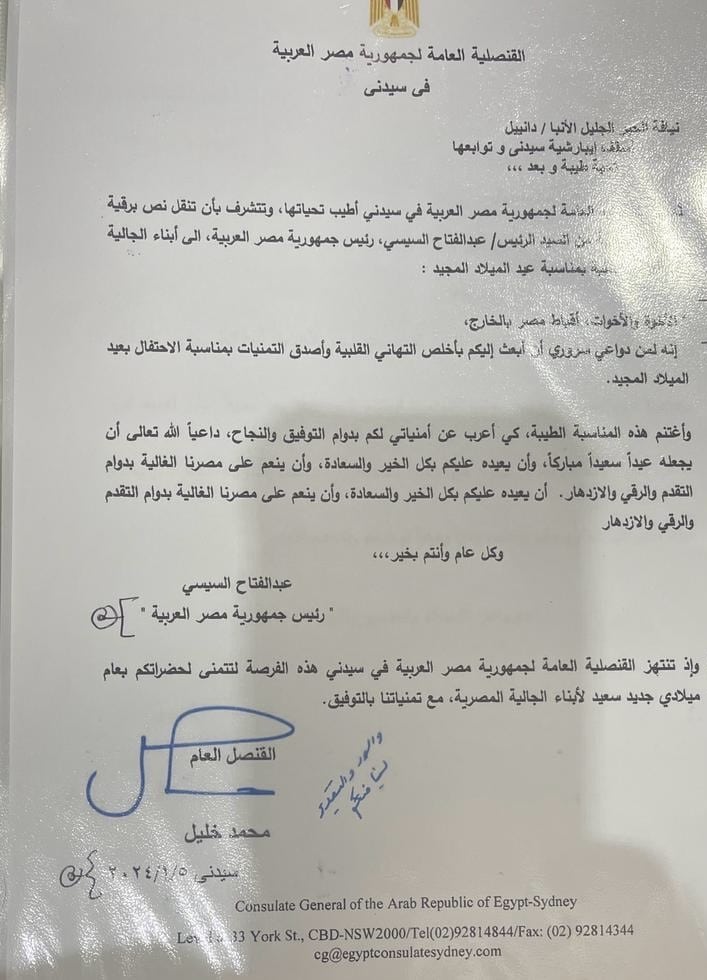 القنصلية العامة لجمهورية مصر العربية
فى سيدنى
نيافة الحبر الجليل الأنبا / دانييل
إيبارشية سيدنى و توابعها
طيبة و بعد ،،،
العامة لجمهورية مصر العربية في سيدني أطيب تحياتها، وتتشرف بأن تنقل نص برقية
من السيد الرئيس/ عبدالفتاح السيسي، رئيس جمهورية مصر العربية، الى أبناء الجالية
بمناسبة عيد الميلاد المجيد :
" الأخوة والأخوات، أقباط مصر بالخارج،
إنه لمن دواعي سروري أن أبعث إليكم بأخلص التهاني القلبية وأصدق التمنيات بمناسبة الاحتفال بعيد
الميلاد المجيد.
وأغتنم هذه المناسبة الطيبة، كي أعرب عن أمنياتي لكم بدوام التوفيق والنجاح، داعياً الله تعالى أن
يجعله عيداً سعيداً مباركاً، وأن يعيده عليكم بكل الخير والسعادة، وأن ينعم على مصرنا الغالية بدوام
التقدم والرقي والازدهار. أن يعيده عليكم بكل الخير والسعادة، وأن ينعم على مصرنا الغالية بدوام التقدم
والرقي والازدهار
وكل عام وأنتم بخير،،،
عبدالفتاح السيسي
" رئيس جمهورية مصر العربية "
وإذ تنتهز القنصلية العامة لجمهورية مصر العربية في سيدني هذه الفرصة لتتمنى لحضراتكم بعام
ميلادي جديد سعيد لأبناء الجالية المصرية، مع تمنياتنا بالتوفيق.
القنصل العام
محمد خليل
سيدنى ٢٠٢٤/١/٥
Consulate General of the Arab Republic of Egypt-Sydney
33 York St., CBD-NSW2000/Tel(02)92814844/Fax: (02) 92814344
cg@egyptconsulatesydney.com